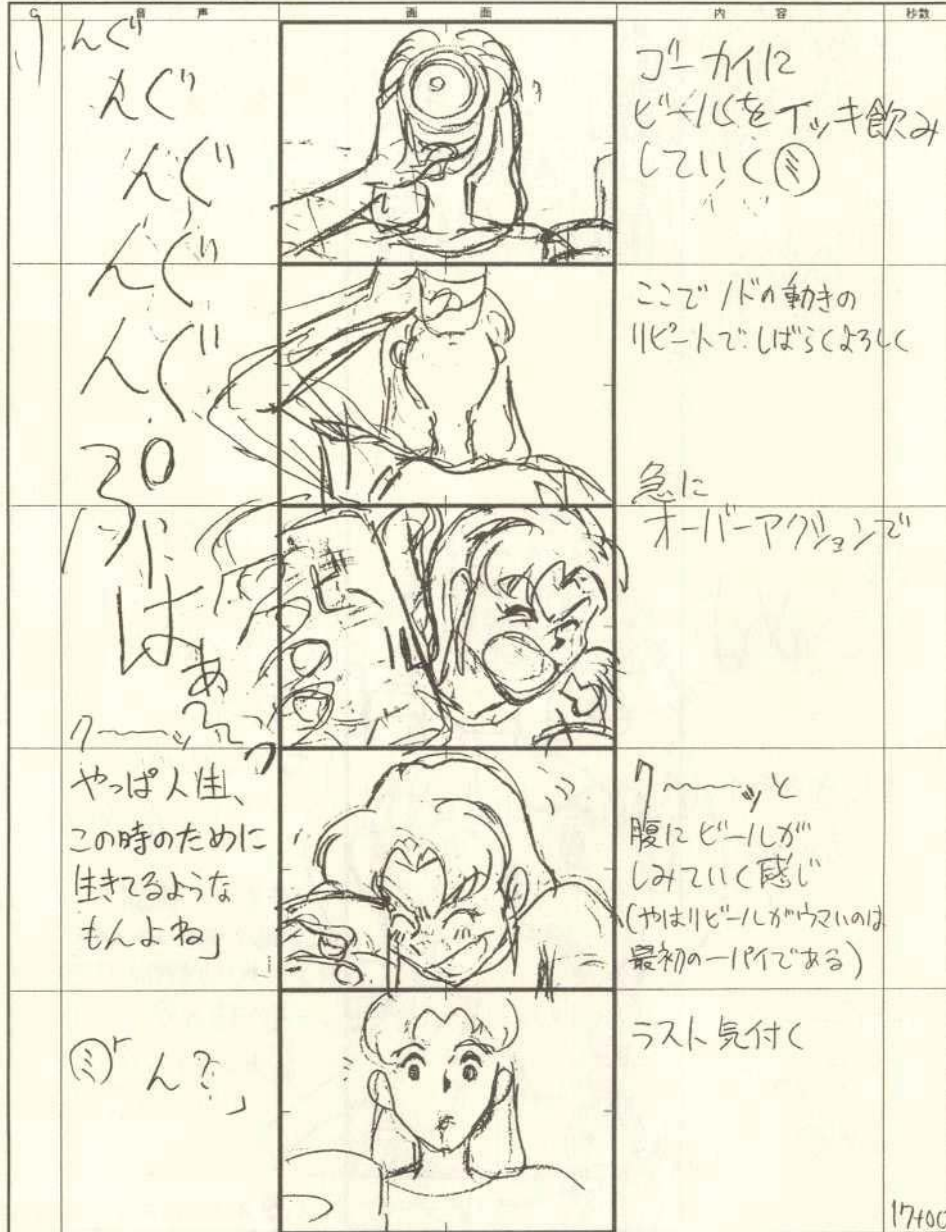 C 音声 画面 内容 秒数
んぐ
んぐ
んぐ
んぐ
んぐ
ぷ
はぁ
クーーッ
ゴーカイに
ビールをイッキ飲み
していく ミ
ここでノドの動きの
リピートで、しばらくよろしく
急に
オーバーアクションで
ビー
やっぱ人生、
この時のために
生きてるような
もんよね」
クーーッと
腹にビールが
しみていく感じ
(やはりビールがウマいのは
最初の一パイである)
ミ「ん?」
ラスト気付く
17+00